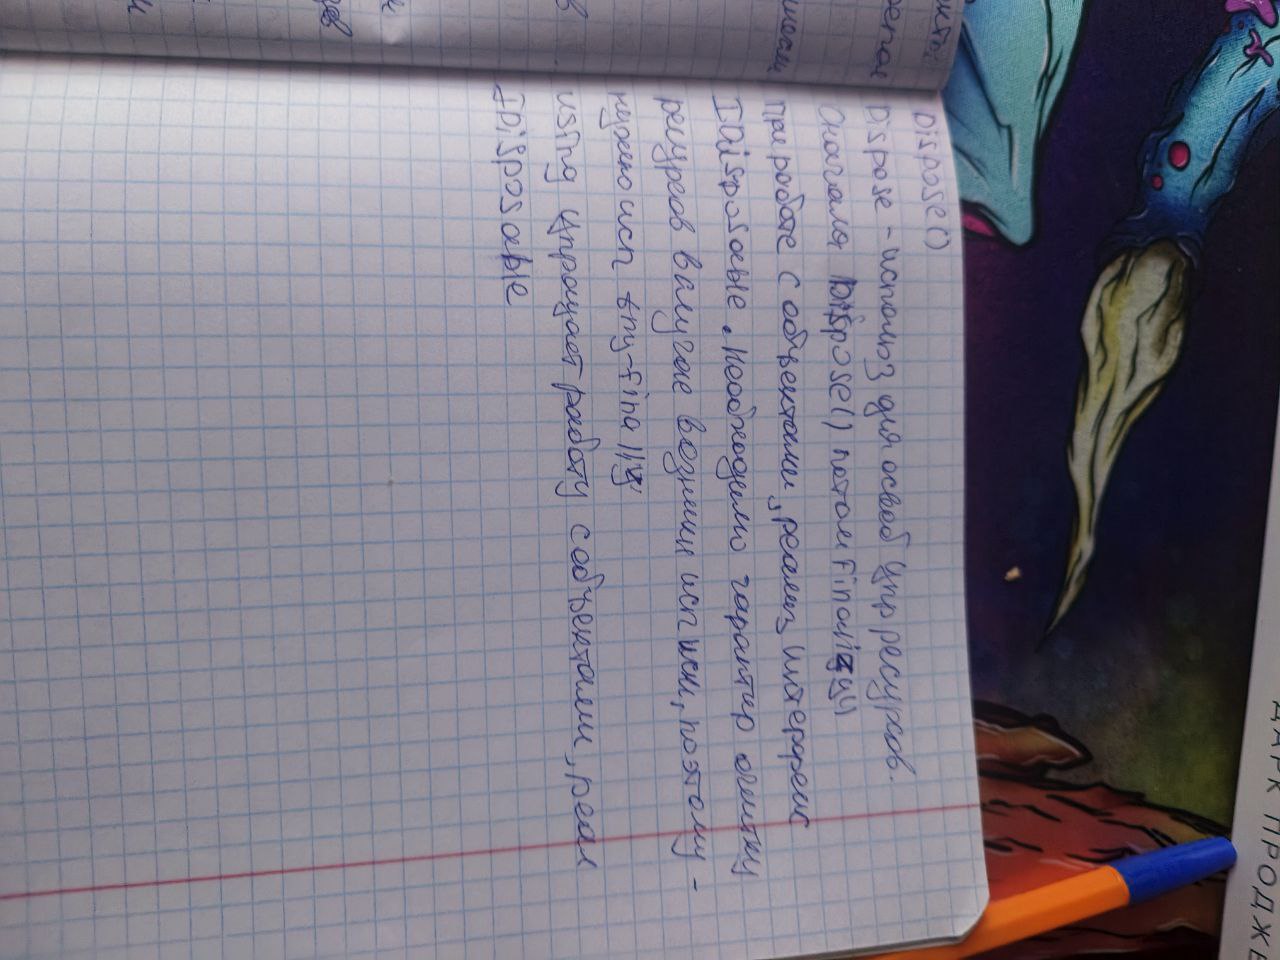 Dispose()
Dispose - использ для освоб упр ресурсов.
Сначала Dispose() потом Finalize()
При работе с объектами, реализ интерфейс
IDisposable. Необходимо гарантир очистку
ресурсов в случае возникн исп искл, поэтому -
нужно исп try-finally
using упрощает работу с объектами, реал
IDisposable
ДАРК ПРОДЖЕ